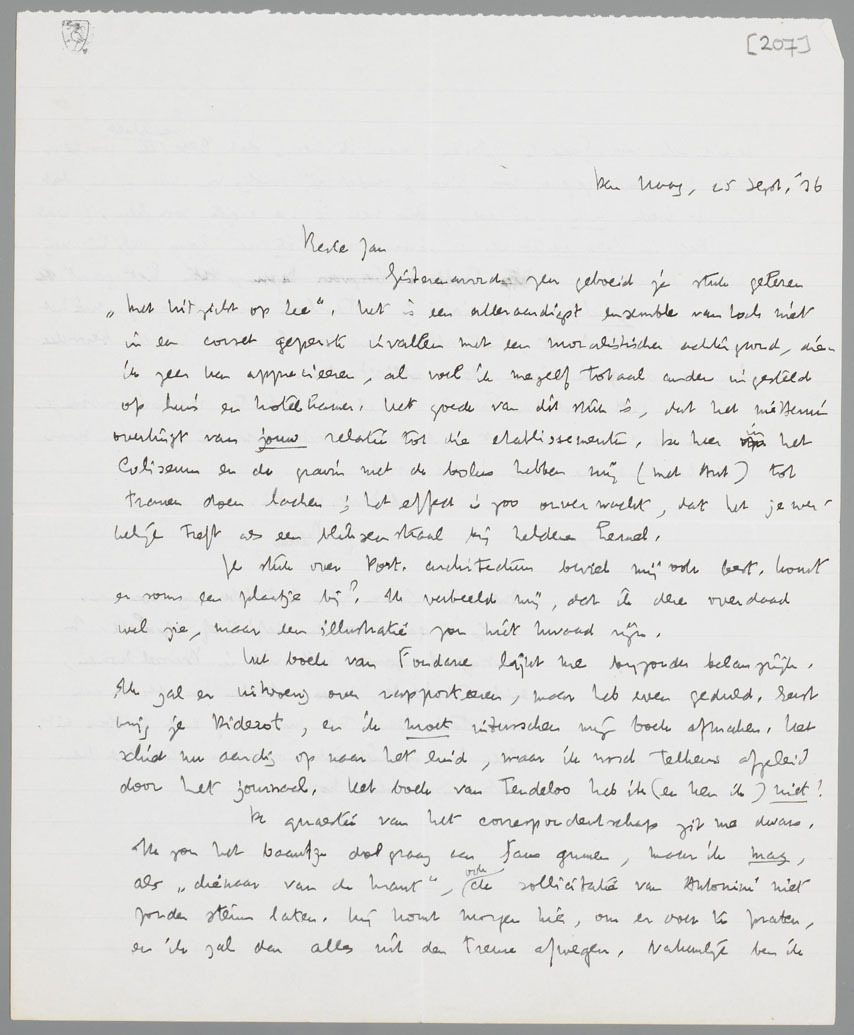 [207]
Den Haag, 25 Sept. '36
Beste Jan
Gisterenavond zeer geboeid je stuk gelezen
„Met uitzicht op Zee". Het is een alleraardigst ensemble van toch niet
in een corset geperste invallen met een moralistischen achtergrond, dien
ik zeer kan apprecieeren, al voel ik mezelf totaal anders ingesteld
op huis en hotelkamer. Het goede van dit stuk is, dat het niettemin
overtuigt van jouw relatie tot die etablissementen. De heer in het
Coliseum en de gravin met de bolus hebben mij (met Ant) tot
tranen doen lachen; het effect is zoo onverwacht, dat het je wer-
kelijk treft als een bliksemstraal bij helderen hemel.
Je stuk over Port. architectuur beviel mij ook best. Komt
er soms een plaatje bij? Ik verbeeld mij, dat ik deze overdaad
wel zie, maar een illustratie zou niet kwaad zijn.
Het boek van Fondane lijkt me bijzonder belangrijk.
Ik zal er uitvoerig over rapporteeren, maar heb even geduld. Eerst
krijg je Diderot, en ik moet intusschen mijn boek afmaken. Het
schiet nu aardig op naar het eind, maar ik word telkens afgeleid
door het journaal. Het boek van Tendeloo heb ik (en ken ik) niet!
De quaestie van het correspondentschap zit me dwars.
Ik zou het baantje dolgraag aan Fans gunnen, maar ik mag,
als „dienaar van de krant", ook de sollicitatie van Antonini niet
zonder steun laten. Hij komt morgen hier, om er over te praten,
en ik zal dan alles uit den treure afwegen. Natuurlijk ben ik